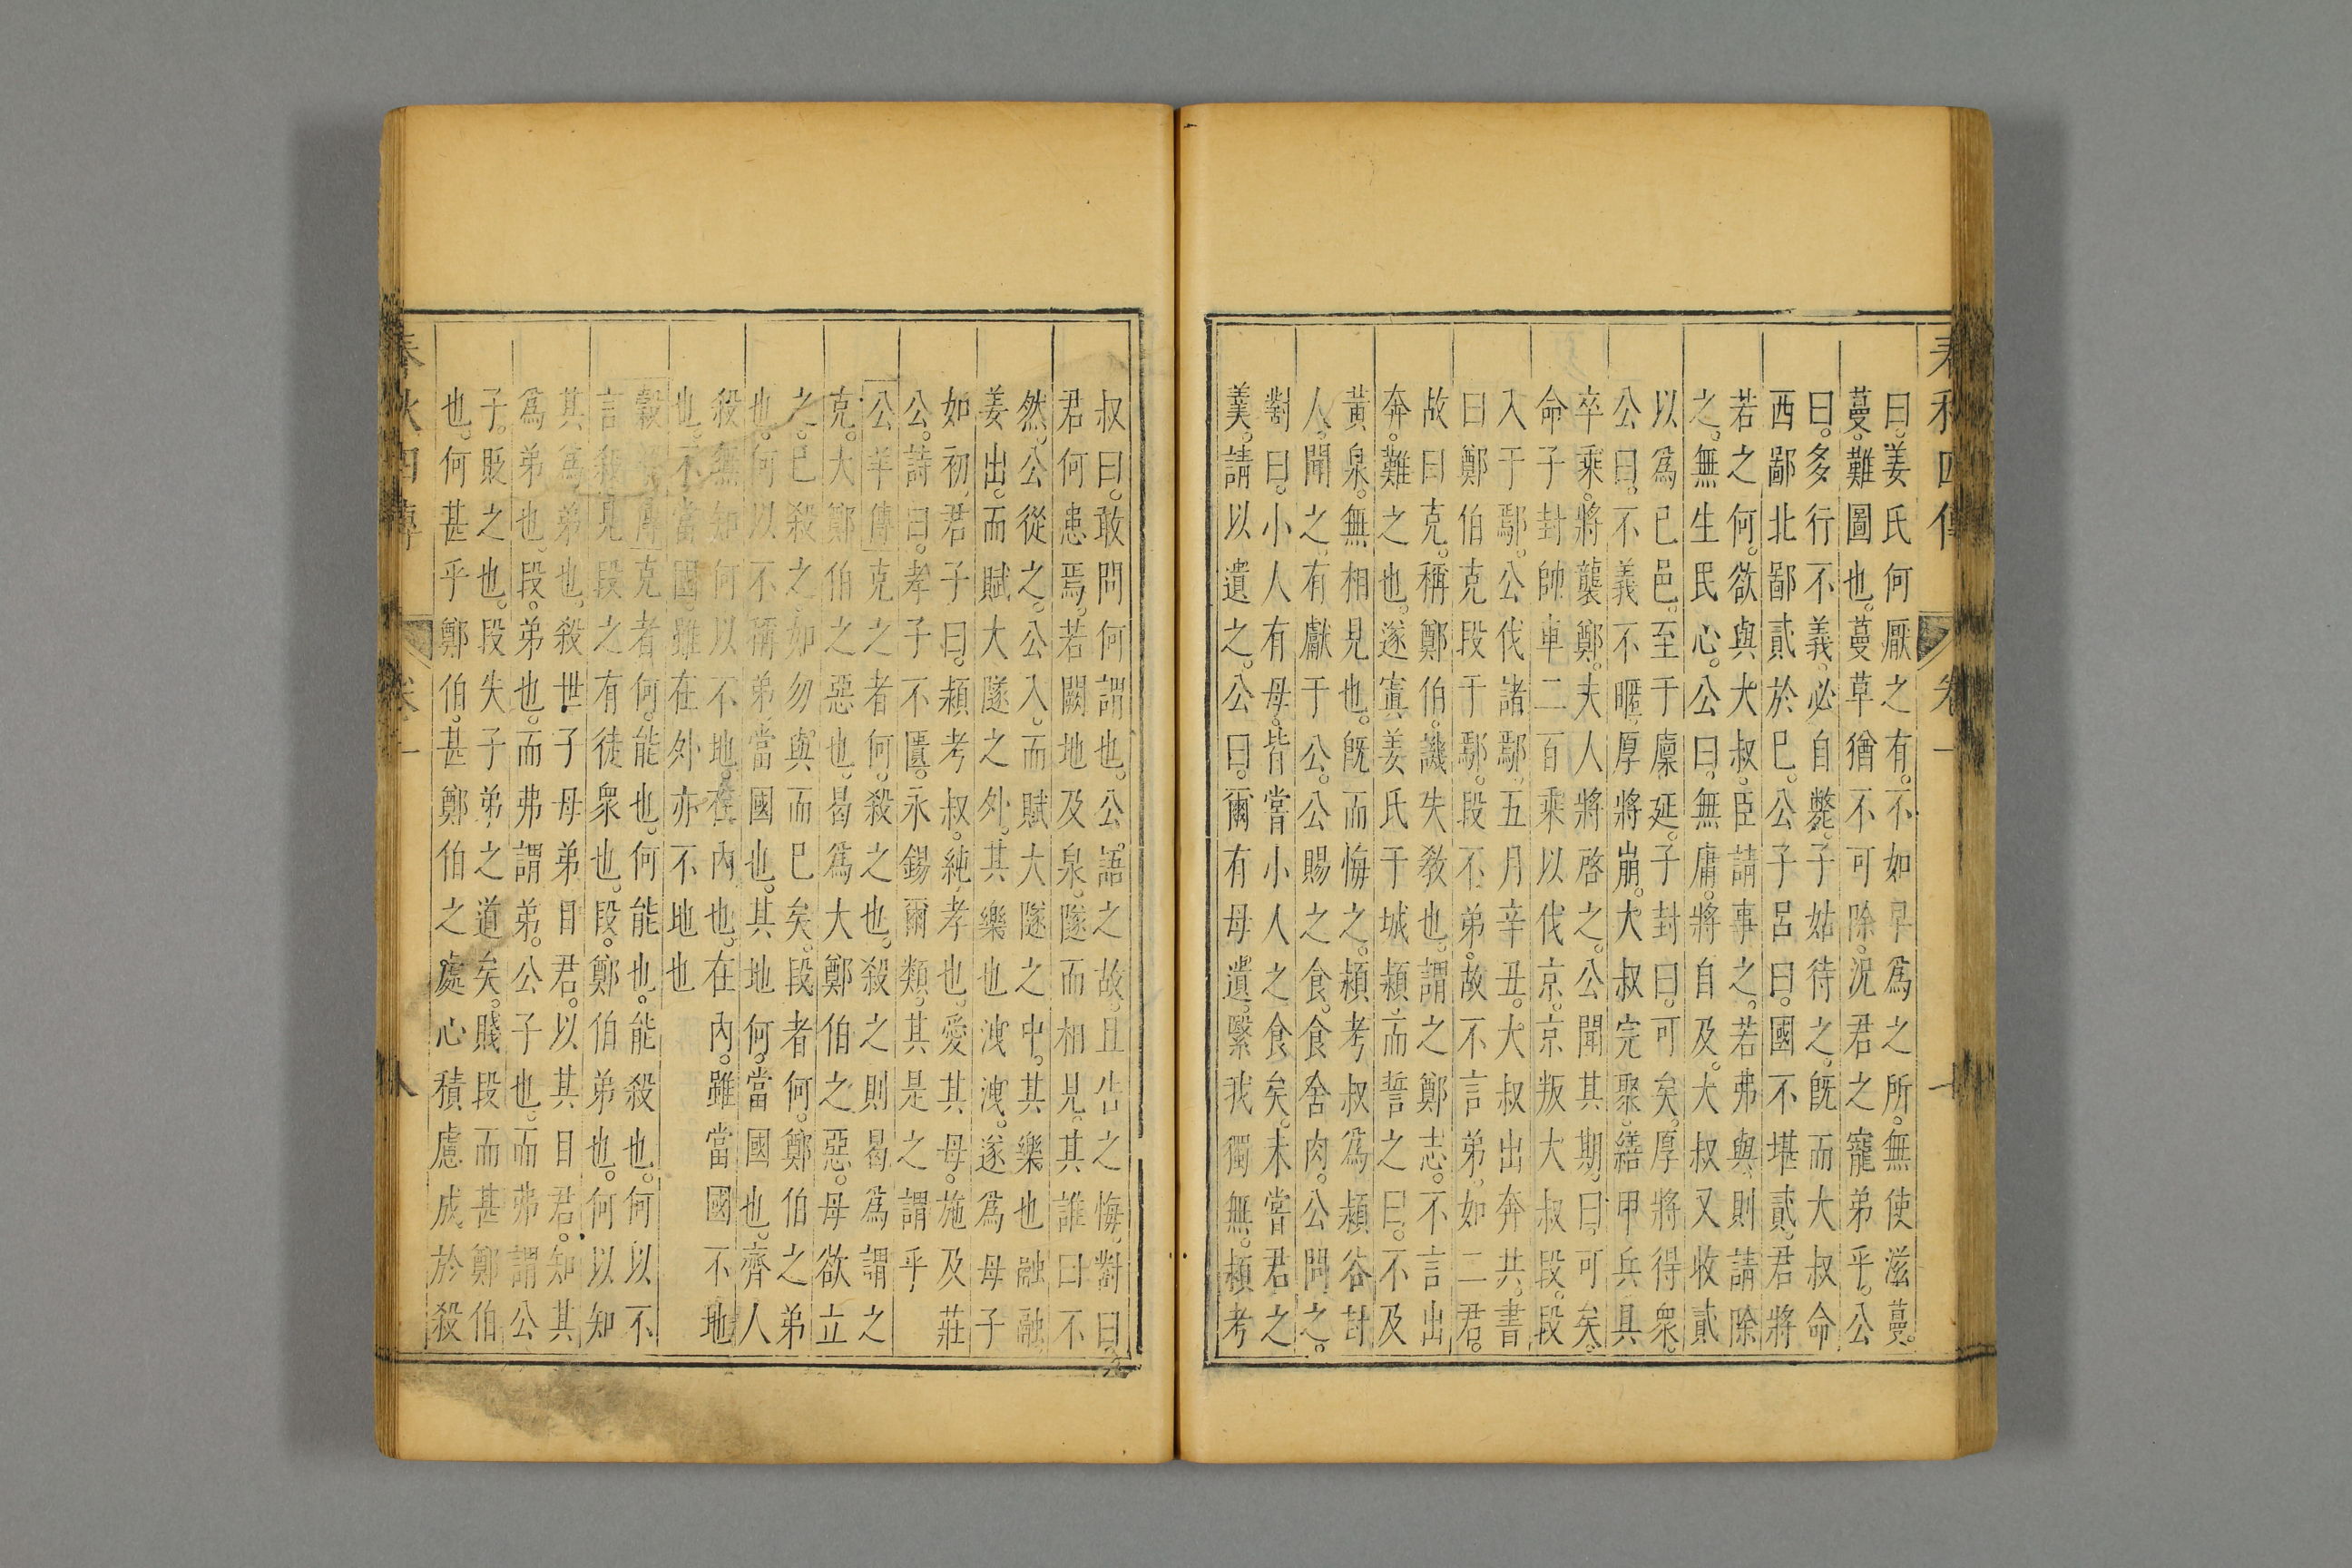 春秋四傳 卷一 七
曰。姜氏何厭之有。不如早爲之所。無使滋蔓。
蔓。難圖也。蔓草猶不可除。況君之寵弟乎。公
曰。多行不義。必自斃。子姑待之。旣而大叔命
西鄙北鄙貳於巳。公子呂曰。國不堪貳。君將
若之何。欲與大叔。臣請事之。若弗與。則請除
之。無生民心。公曰。無庸。將自及。大叔又收貳
以爲已邑。至于廩延。子封曰。可矣。厚將得衆。
公曰。不義不暱。厚將崩。大叔完聚。繕甲兵具
卒乘。將襲鄭。夫人將啓之。公聞其期。曰。可矣。
命子封帥車二百乘以伐京。京叛大叔段。段
入于鄢。公伐諸鄢。五月辛丑。大叔出奔共。書
曰鄭伯克段于鄢。段不弟。故不言弟。如二君。
故曰克。稱鄭伯。譏失敎也。謂之鄭志。不言出
奔。難之也。遂寘姜氏于城潁。而誓之曰。不及
黃泉。無相見也。旣而悔之。潁考叔爲潁谷封
人。聞之。有獻于公。公賜之食。食舍肉。公問之。
對曰。小人有母。皆嘗小人之食矣。未嘗君之
羹。請以遺之。公曰。爾有母遺。繄我獨無。潁考
叔曰。敢問何謂也。公語之故。且告之悔。對曰。
君何患焉。若闕地及泉。隧而相見。其誰曰不
然。公從之。公入。而賦大隧之中。其樂也融融。
姜出。而賦大隧之外。其樂也洩洩。遂爲母子
如初。君子曰。潁考叔。純孝也。愛其母。施及莊
公。詩曰。孝子不匱。永錫爾類。其是之謂乎
公羊傳 克之者何。殺之也。殺之則曷爲謂之
克。大鄭伯之惡也。曷爲大鄭伯之惡。母欲立
之。已殺之。如勿與而已矣。段者何。鄭伯之弟
也。何以不稱弟。當國也。其地何。當國也。齊人
殺無知何以不地。在內也。在內。雖當國不地
也。不當國。雖在外亦不地也
穀梁傳 克者何。能也。何能也。能殺也。何以不
言殺。見段之有徒衆也。段。鄭伯弟也。何以知
其爲弟也。殺世子母弟目君。以其目君。知其
爲弟也。段。弟也。而弗謂弟。公子也。而弗謂公
子。貶之也。段失子弟之道矣。賤段而甚鄭伯
也。何甚乎鄭伯。甚鄭伯之處心積慮成於殺
春秋四傳 卷一 八